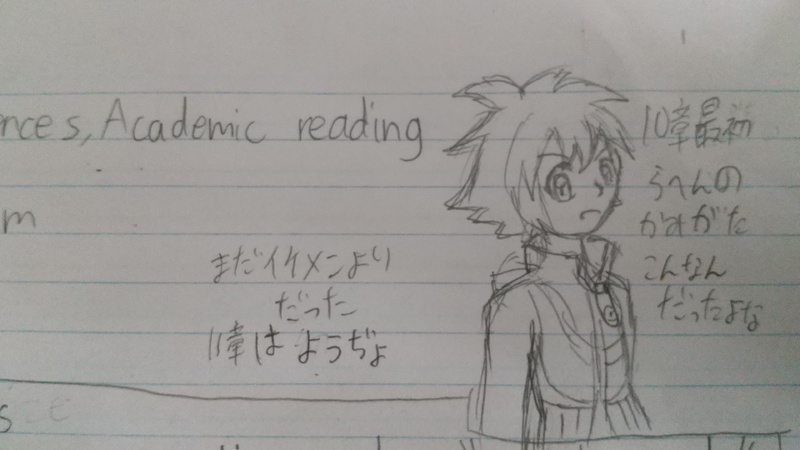 nces, Academic reading
m
10章最初
らへんの
かみがた
こんなん
だったよな
まだイケメンより
だった
11章はようぢょ
s